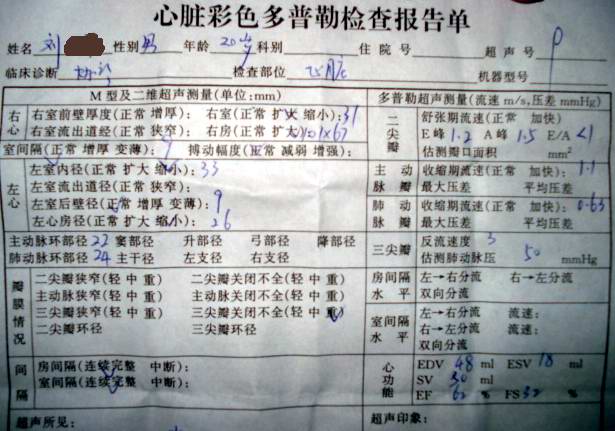 心脏彩色多普勒检查报告单
姓名 刘 性别 男 年龄 20岁 科别 住院号 超声号
临床诊断 检查部位 心脏 机器型号
M型及二维超声测量(单位:mm) 多普勒超声测量(流速m/s,压差mmHg)
右心
右室前壁厚度(正常 增厚): 右室(正常 扩大 缩小): 31
右室流出道经(正常 狭窄): 右房(正常 扩大)
室间隔(正常 增厚 变薄): 9 搏动幅度(正常 减弱 增强):
左心
左室内径(正常 扩大 缩小): 33
左室流出道径(正常 狭窄):
左室后壁径(正常 增厚 变薄): 9
左心房径(正常 扩大 缩小): 26
主动脉环部径 22 窦部径 升部径 弓部径 降部径
肺动脉环部径 24 主干径 左支径 右支径
瓣膜情况
二尖瓣狭窄(轻 中 重) 二尖瓣关闭不全(轻 中 重)
主动脉狭窄(轻 中 重) 主动脉关闭不全(轻 中 重)
三尖瓣狭窄(轻 中 重) 三尖瓣关闭不全(轻 中 重)
二尖瓣环径 三尖瓣环径
间隔
房间隔(连续完整 中断):
室间隔(连续完整 中断):
超声所见:
二尖瓣
舒张期流速(正常 加快):
E峰 1.2 A峰 1.5 E/A <1
估测瓣口面积 mm²
主动脉瓣
收缩期流速(正常 加快): 1.1
最大压差 平均压差
肺动脉瓣
收缩期流速(正常 加快): 0.63
最大压差 平均压差
三尖瓣
反流速度 3
估测肺动脉压 50 mmHg
房间隔水平
左→右分流 右→左分流
双向分流
室间隔水平
左→右分流 流速:
右→左分流 流速:
双向分流
心功能
EDV 48 ml ESV 18 ml
SV 30 ml
EF 62 % FS 32 %
超声印象: